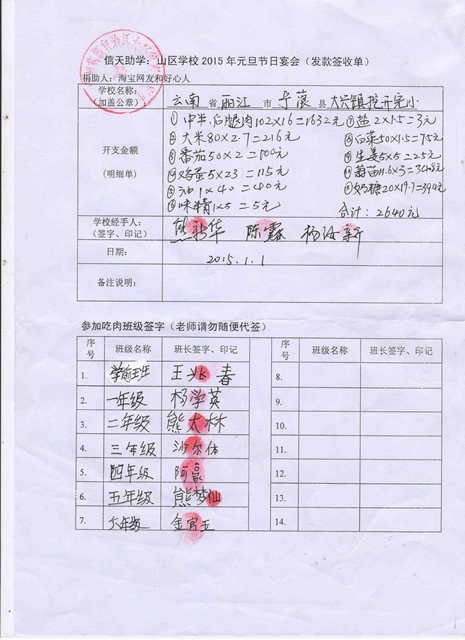 信天助学：山区学校 2015 年元旦节日宴会（发款签收单）
捐助人：淘宝网友和好心人
学校名称：（加盖公章） 云南省 丽江 市 宁蒗 县 大兴镇挖开完小
开支金额（明细单）
①中半,后腿肉102×16=1632元 ⑦盐2×1.5=3元
②大米80×2.7=216元 ⑧白菜50×1.5=75元
③番茄50×2=100元 ⑨生姜5×5=25元
④鸡蛋5×23=115元
⑤油1×40=40元
⑥味精1×5=5元 合计：2640元
学校经手人：（签字、印记） 熊新华
日期： 2015.1.1
备注说明：
参加吃肉班级签字（老师请勿随便代签）
序号 班级名称 班长签字、印记 序号 班级名称 班长签字、印记
1. 学前班 王 春 8.
2. 一年级 杨学英 9.
3. 二年级 熊大林 10.
4. 三年级 沙尔体 11.
5. 四年级 12.
6. 五年级 熊梦仙 13.
7. 六年级 金官玉 14.